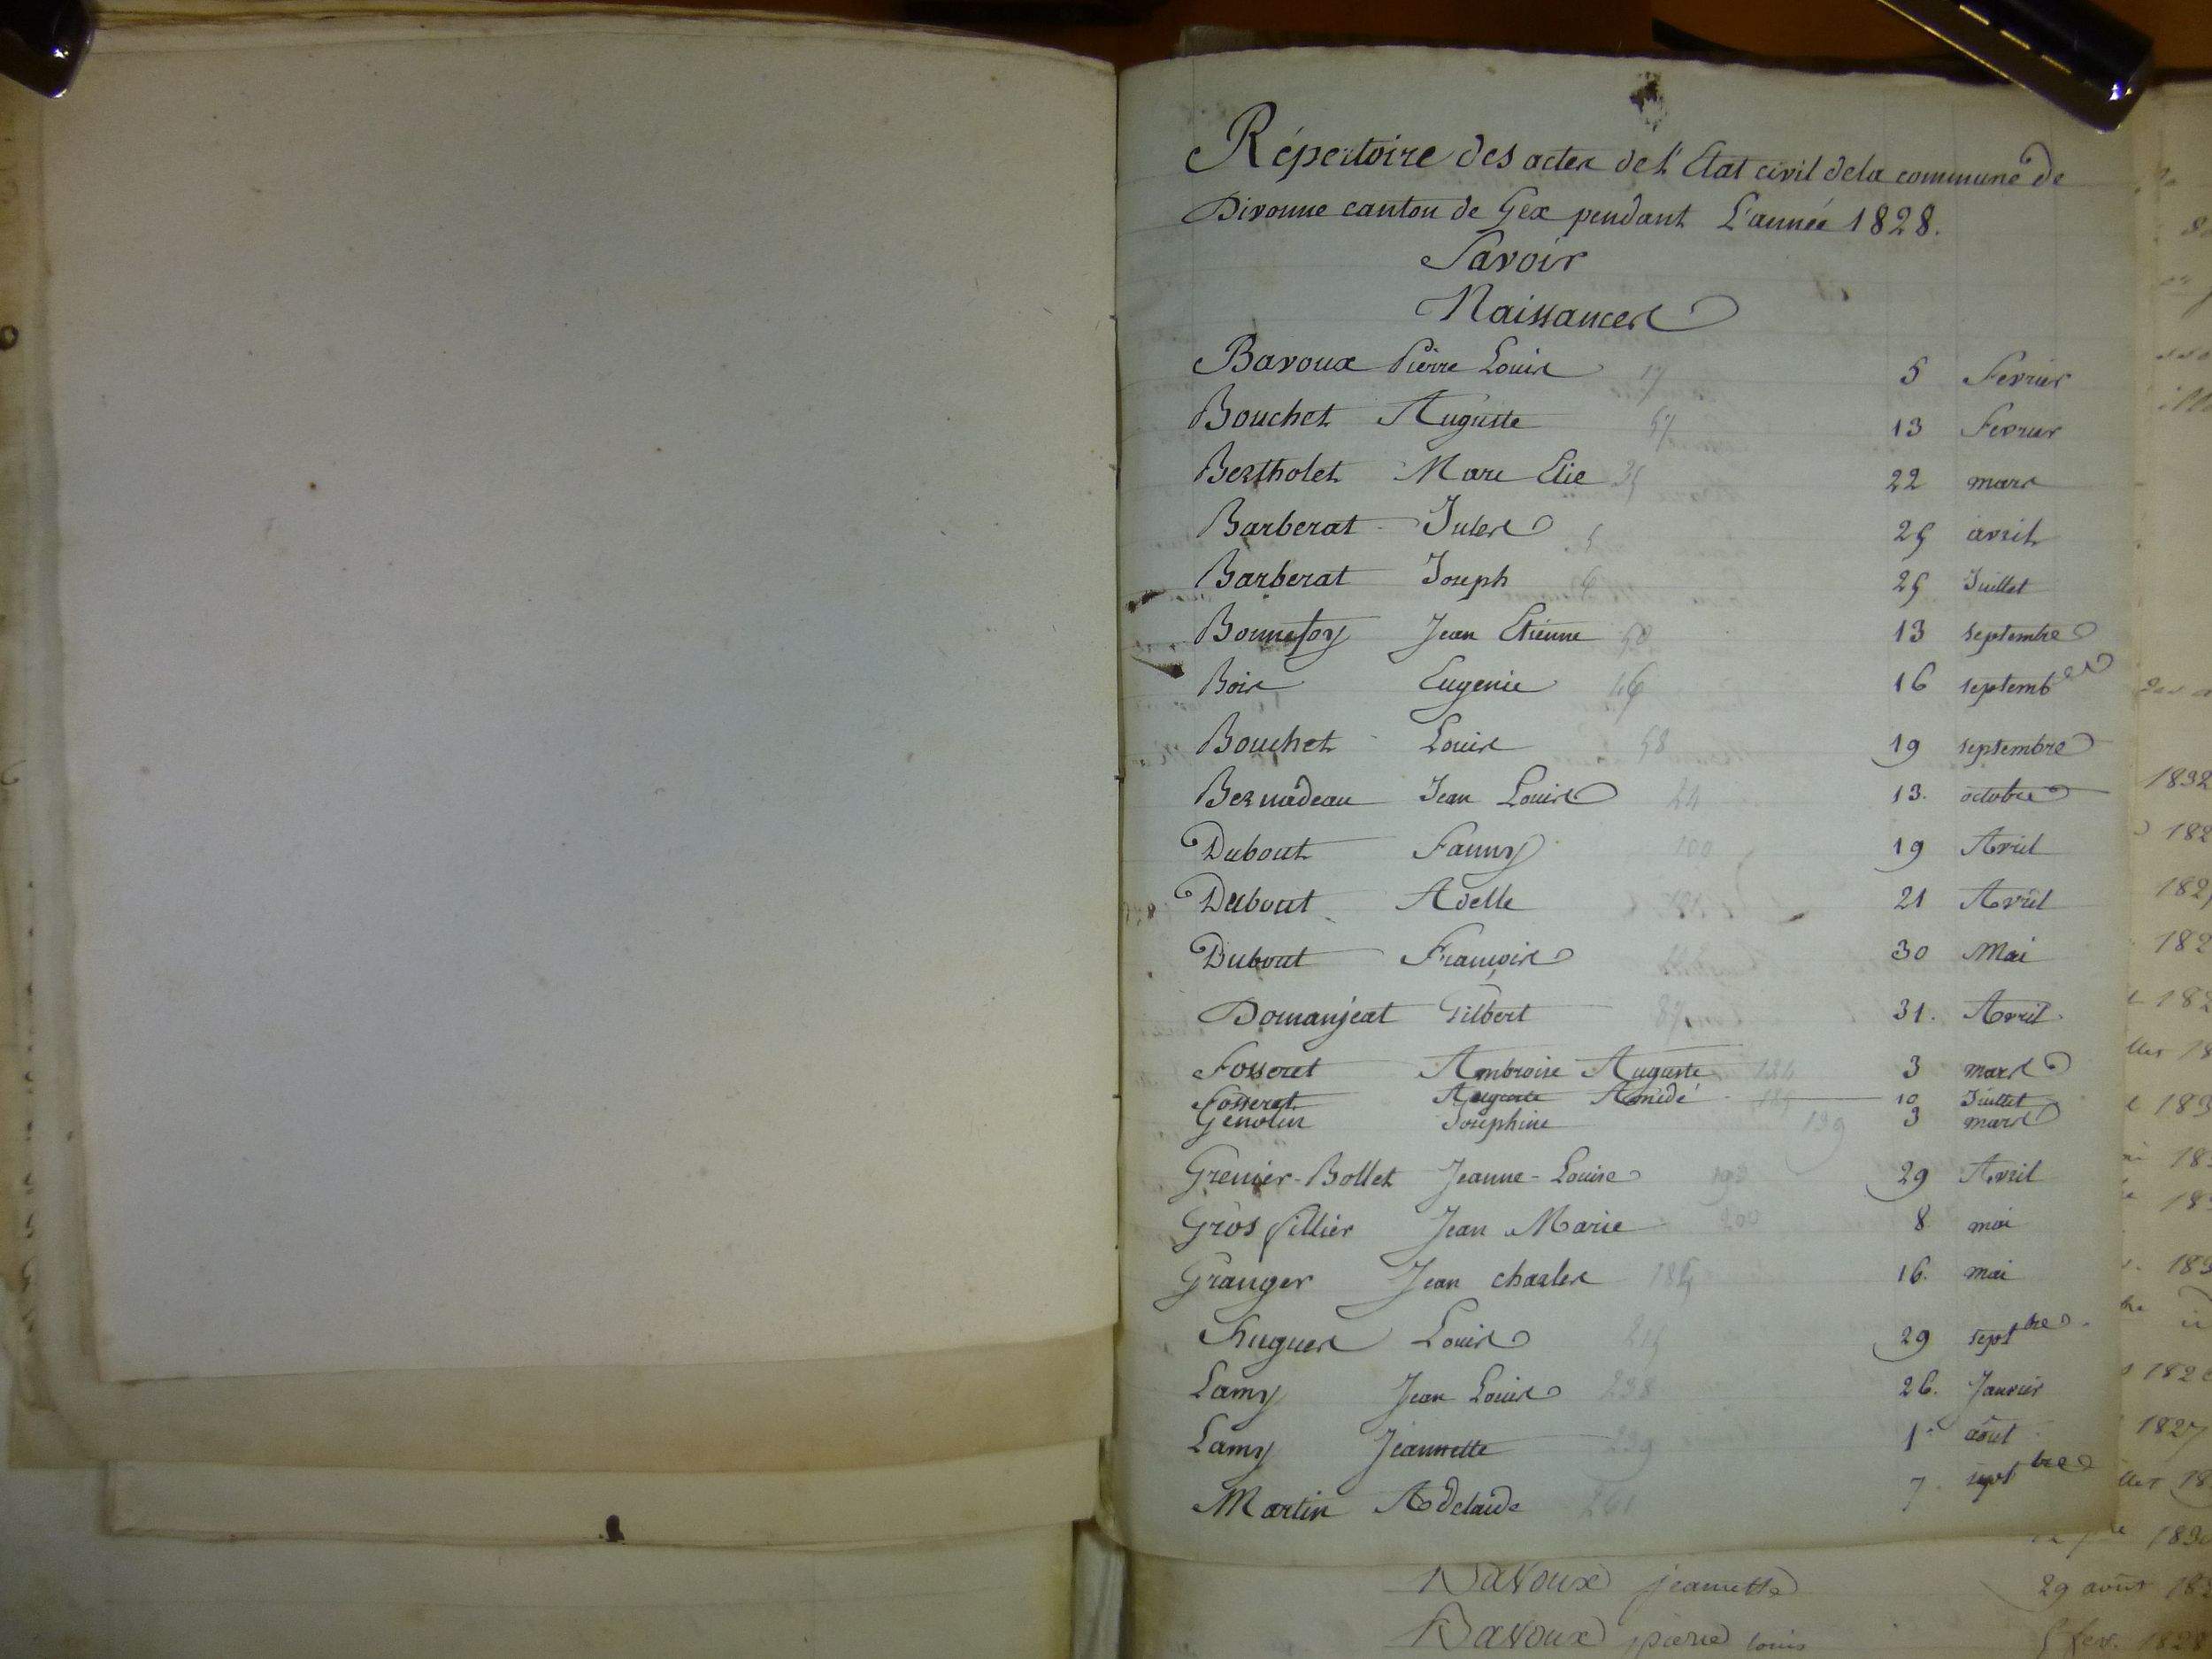 Répertoire des actes de l'Etat civil de la commune de
Divonne canton de Gex pendant L'année 1828.
Savoir
Naissances
Bavoux Pierre Louis 17 5 Fevrier
Bouchet Auguste 57 13 Fevrier
Bertholet Marc Elie 35 22 mars
Barberat Jules 5 25 avril
Barberat Joseph 6 25 Juillet
Bonnefoy Jean Etienne 50 13 septembre
Bois Eugenie 46 16 septembre
Bouchet Louis 58 19 septembre
Bernadeau Jean Louis 24 13. octobre
Dubout Fanny 100 19 Avril
Dubout Adelle 21 Avril
Dubout François 30 Mai
Domanjeat Gilbert 31. Avril.
Fosseret Ambroise Auguste 124 3 mars
Fosseret Auguste Amidé 10 Juillet
Genolin Josephine 139 3 mars
Grenier-Bollet Jeanne-Louise 193 29 Avril
Gros fillier Jean Marie 200 8 mai
Granger Jean charles 16. mai
hugues Louis 215 29 septbre.
Lamy Jean Louis 238 26. Janvier
Lamy Jeannette 239 1er août
Martin Adelaide 261 7. septbre
Bavoux jeannette 29 août 18
Bavoux pierre louis 5 fev. 1828
1832
182
182
182
182
183
183
183
183
1827
183